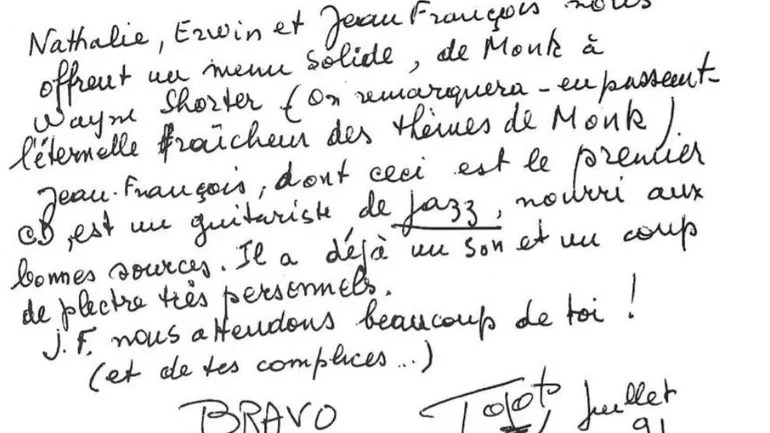 Nathalie, Erwin et Jean François nous
offrent un menu solide, de Monk à
Wayne Shorter (On remarquera - en passant -
l'éternelle fraîcheur des thèmes de Monk)
Jean-François, dont ceci est le premier
CD, est un guitariste de jazz, nourri aux
bonnes sources. Il a déjà un son et un coup
de plectre très personnels.
J.F. nous attendons beaucoup de toi !
(et de tes complices...)
BRAVO Juillet
91